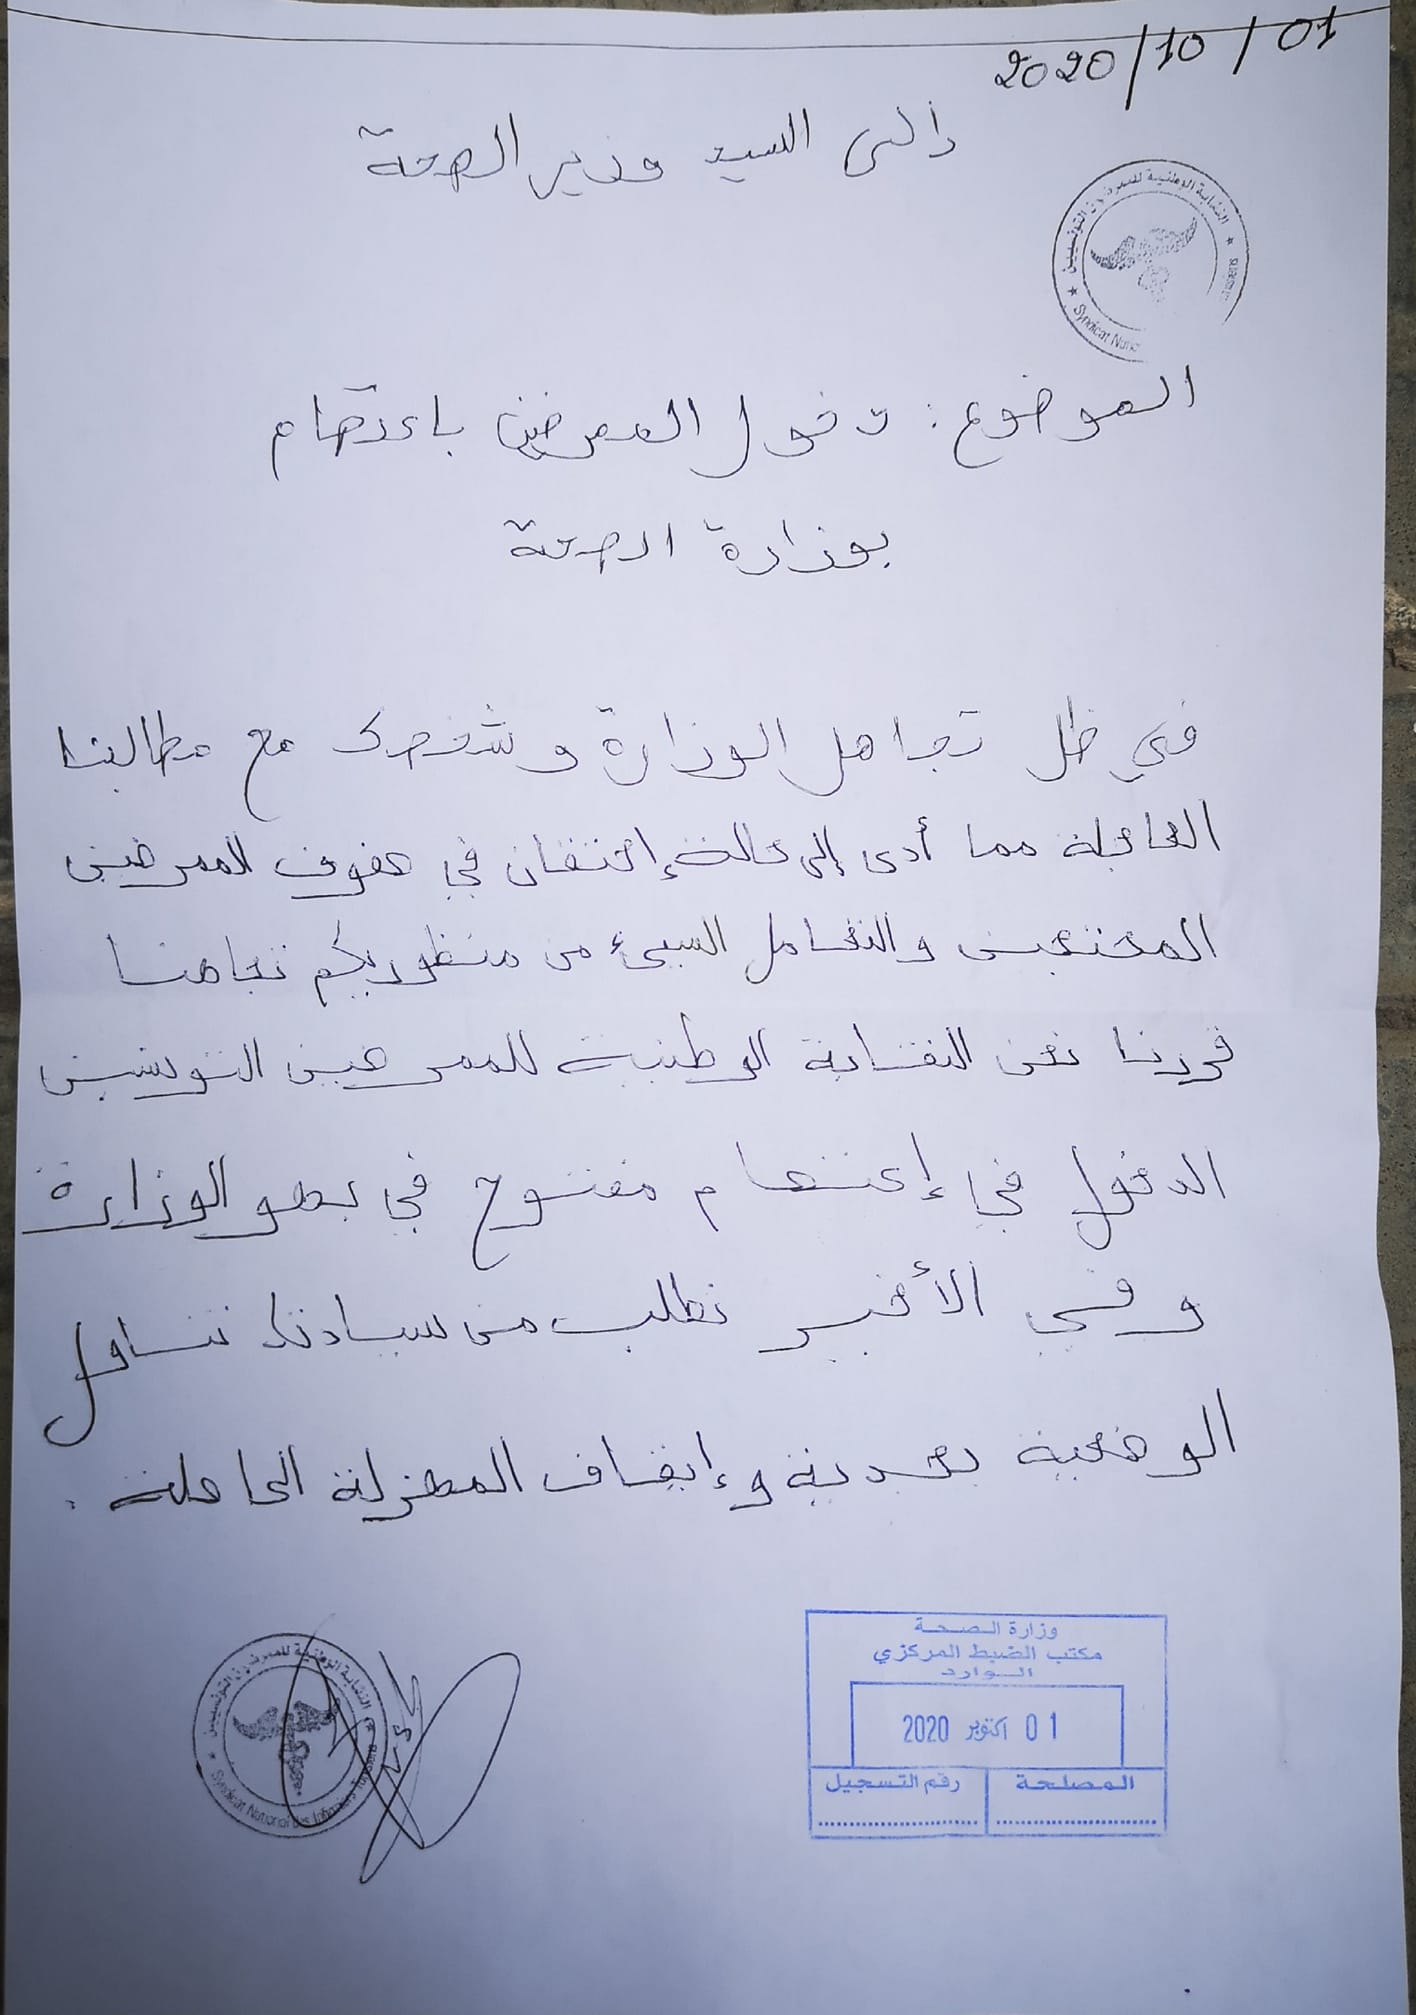 2020/10/01
إلى السيد وزير الصحة
النقابة الوطنية للممرضين التونسيين
Syndicat
الموضوع: دخول الممرضين باعتصام
بوزارة الصحة
في ظل تجاهل الوزارة و شخصك مع مطالبنا
العاجلة مما أدى إلى حالة إحتقان في صفوف الممرضين
المحتجين والتعامل السيئ من منظوريكم تجاهنا
قررنا نحن النقابة الوطنية للممرضين التونسيين
الدخول في إعتصام مفتوح في بهو الوزارة
وفي الأخير نطلب من سيادتك تناول
الوضعية بجدية و إيقاف المهزلة الحاصلة.
النقابة الوطنية للممرضين التونسيين
Syndicat National des Infirmiers
وزارة الصحة
مكتب الضبط المركزي
الوارد
01 اكتوبر 2020
المصلحة رقم التسجيل